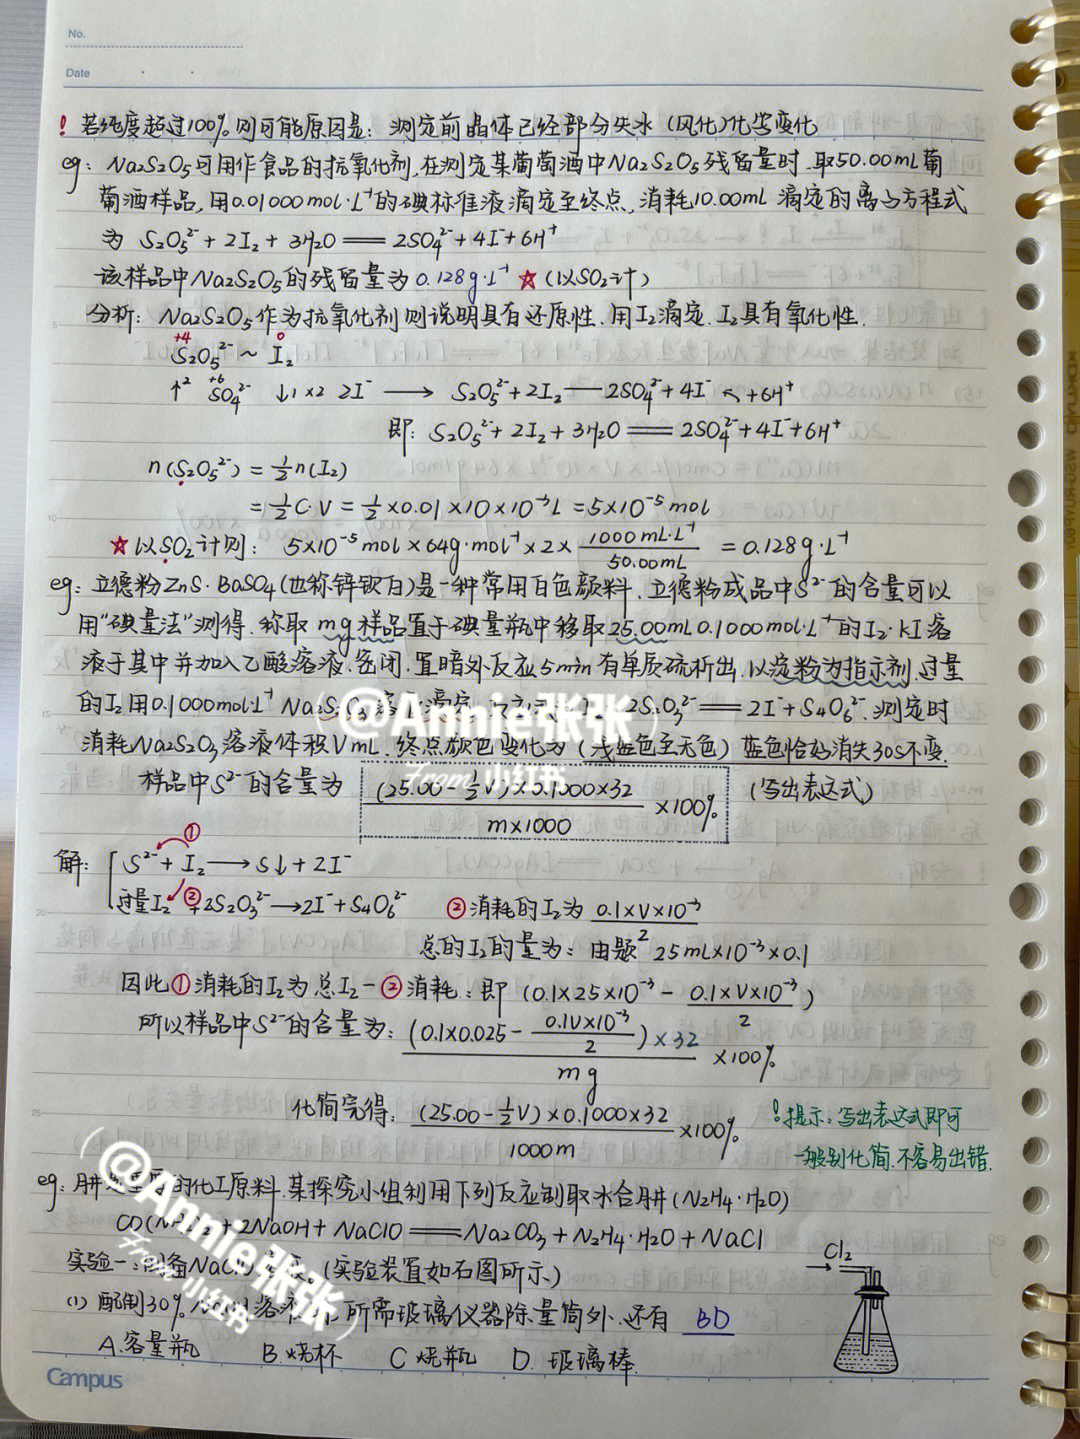 No.
Date
! 若纯度超过100% 则可能原因是: 测定前晶体已经部分失水 (风化)化学变化
eg: Na2S2O5可用作食品的抗氧化剂, 在测定某葡萄酒中Na2S2O5残留量时, 取50.00mL葡
萄酒样品, 用0.01000mol·L⁻¹的碘标准液滴定至终点, 消耗10.00mL 滴定的离子方程式
为 S2O5²⁻+2I2+3H2O══2SO4²⁻+4I⁻+6H⁺
该样品中Na2S2O5的残留量为 0.128g·L⁻¹ ★(以SO2计)
分析: Na2S2O5作为抗氧化剂则说明具有还原性. 用I2滴定. I2具有氧化性.
+4 0
S2O5²⁻ ~ I2
↑2 +6 SO4²⁻ ↓1×2 2I⁻ ⟶ S2O5²⁻+2I2—2SO4²⁻+4I⁻ ↖+6H⁺
即: S2O5²⁻+2I2+3H2O══2SO4²⁻+4I⁻+6H⁺
n(S2O5²⁻)=½n(I2)
=½C·V=½×0.01×10×10⁻³L=5×10⁻⁵mol
★以SO2计则: 5×10⁻⁵mol×64g·mol⁻¹×2×1000mL·L⁻¹/50.00mL =0.128g·L⁻¹
eg: 立德粉ZnS·BaSO4(也称锌钡白)是一种常用白色颜料. 立德粉成品中S²⁻的含量可以
用"碘量法"测得. 称取mg样品置于碘量瓶中移取25.00mL0.1000mol·L⁻¹的I2·KI溶
液于其中并加入乙酸溶液. 密闭. 置暗处反应5min有单质硫析出. 以淀粉为指示剂. 过量
的I2用0.1000mol·L⁻¹ Na2S 滴定 2S2O3²⁻══2I⁻+S4O6²⁻. 测定时
消耗Na2S2O3溶液体积VmL. 终点颜色变化为 (浅蓝色至无色) 蓝色恰好消失30S不变.
样品中S²⁻的含量为 (25.00-½V)×0.1000×32/m×1000 ×100% (写出表达式)
@Annie张张
From 小红书
解: S²⁻+I2⟶S↓+2I⁻ ①
过量I2 ②+2S2O3²⁻⟶2I⁻+S4O6²⁻ ②消耗的I2为 0.1×V×10⁻³/2
总的I2的量为: 由题 25mL×10⁻³×0.1
因此①消耗的I2为总I2-②消耗: 即 (0.1×25×10⁻³ - 0.1×V×10⁻³/2)
所以样品中S²⁻的含量为: (0.1×0.025-0.1V×10⁻³/2)×32/mg ×100%
化简完得: (25.00-½V)×0.1000×32/1000m ×100%
!提示: 写出表达式即可
一般别化简. 不容易出错.
eg: 肼 的化工原料. 某探究小组利用下列反应制取水合肼(N2H4·H2O)
CO(NH2)2+2NaOH+NaClO══Na2CO3+N2H4·H2O+NaCl
实验一: 备NaClO (实验装置如右图所示)
(1) 配制30% 溶液 所需玻璃仪器除量筒外. 还有 BD
A.容量瓶 B.烧杯 C 烧瓶 D. 玻璃棒
Cl2
@Annie张张
From 小红书
Campus